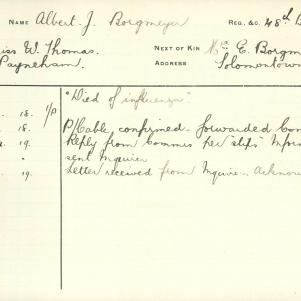 NAME Albert. J. Borgmeyer REG. &C. 48th B
iss W. Thomas.
NEXT OF KIN Mrs E. Borgm
Payneham.
ADDRESS Solomontown
"Died of influenza"
18. 1/P
18. P/Cable confirmed - forwarded Com
19. Reply from Commes per slip
sent Inquirer
19. Letter received from Inquirer - Acknow